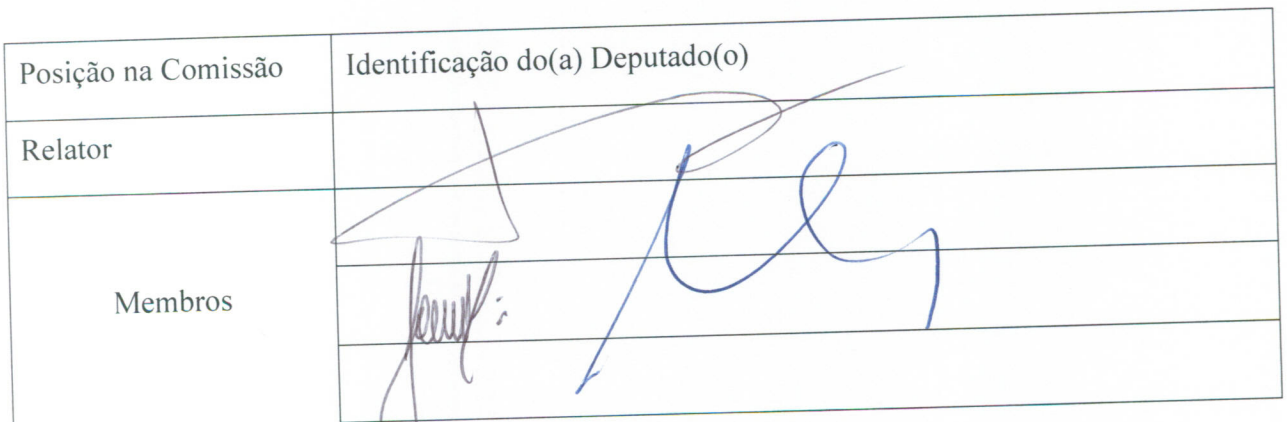 Posição na Comissão Identificação do(a) Deputado(o)
Relator
Membros